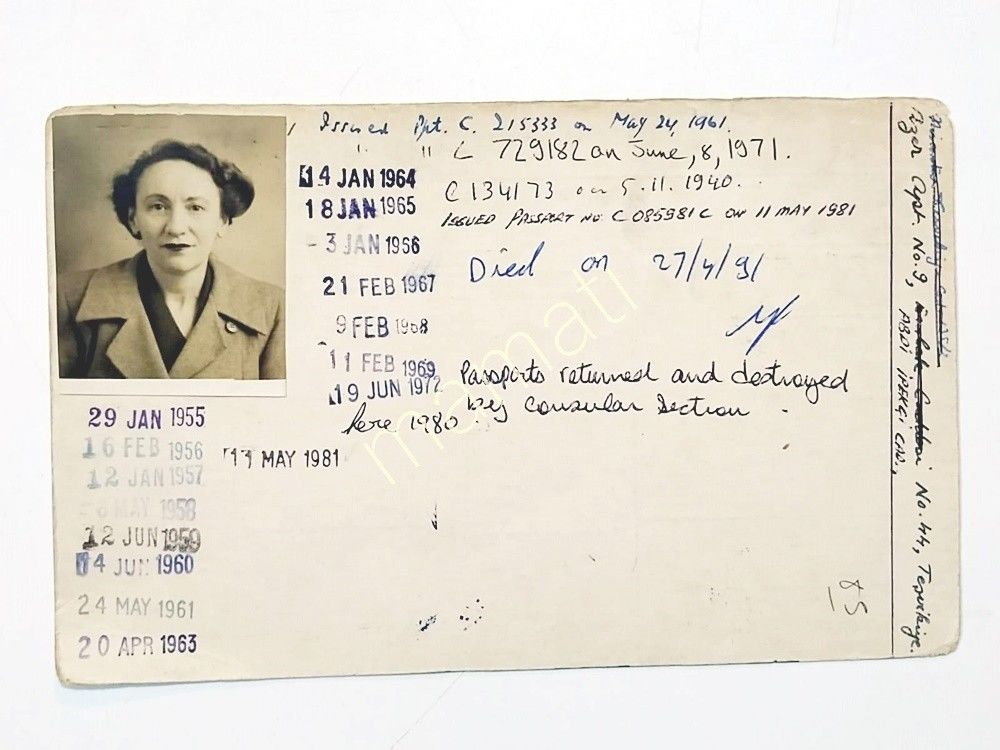 Issued Ppt. C. 215333 on May 24, 1961.
" " C 729182 on June, 8, 1971.
C134173 on 5.11.1940.
ISSUED PASSPORT NO C 085981 C ON 11 MAY 1981
Died on 27/4/91
Passports returned and destroyed
here 1980 by Consular Section.
14 JAN 1964
18 JAN 1965
3 JAN 1966
21 FEB 1967
9 FEB 1968
11 FEB 1969
19 JUN 1972
11 MAY 1981
29 JAN 1955
16 FEB 1956
12 JAN 1957
6 MAY 1958
12 JUN 1959
14 JUN 1960
24 MAY 1961
20 APR 1963
Apt. No. 9, No. 44, Teşvikiye.
ABDİ İPEKÇİ CAD.,
85
mamati